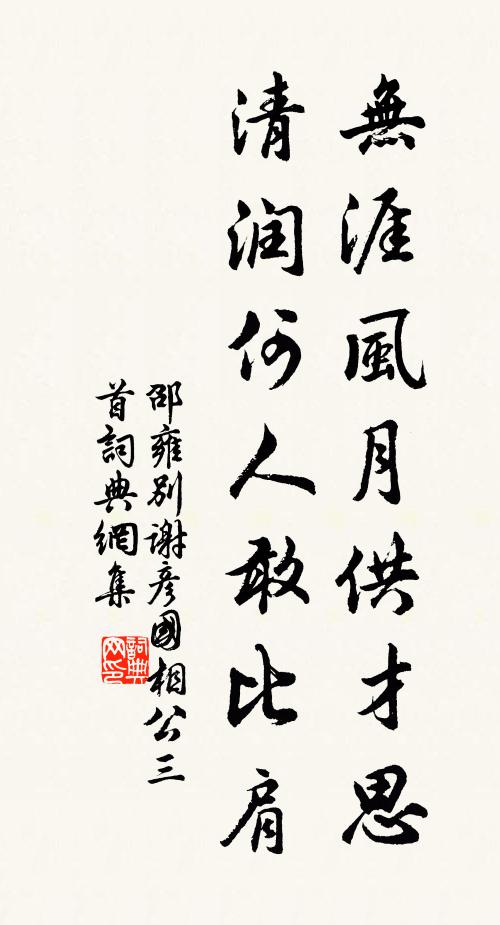 無涯風月供才思
清润何人敢比肩
邵雍別谢彦國相公三
首詞典網集
詞典
网印